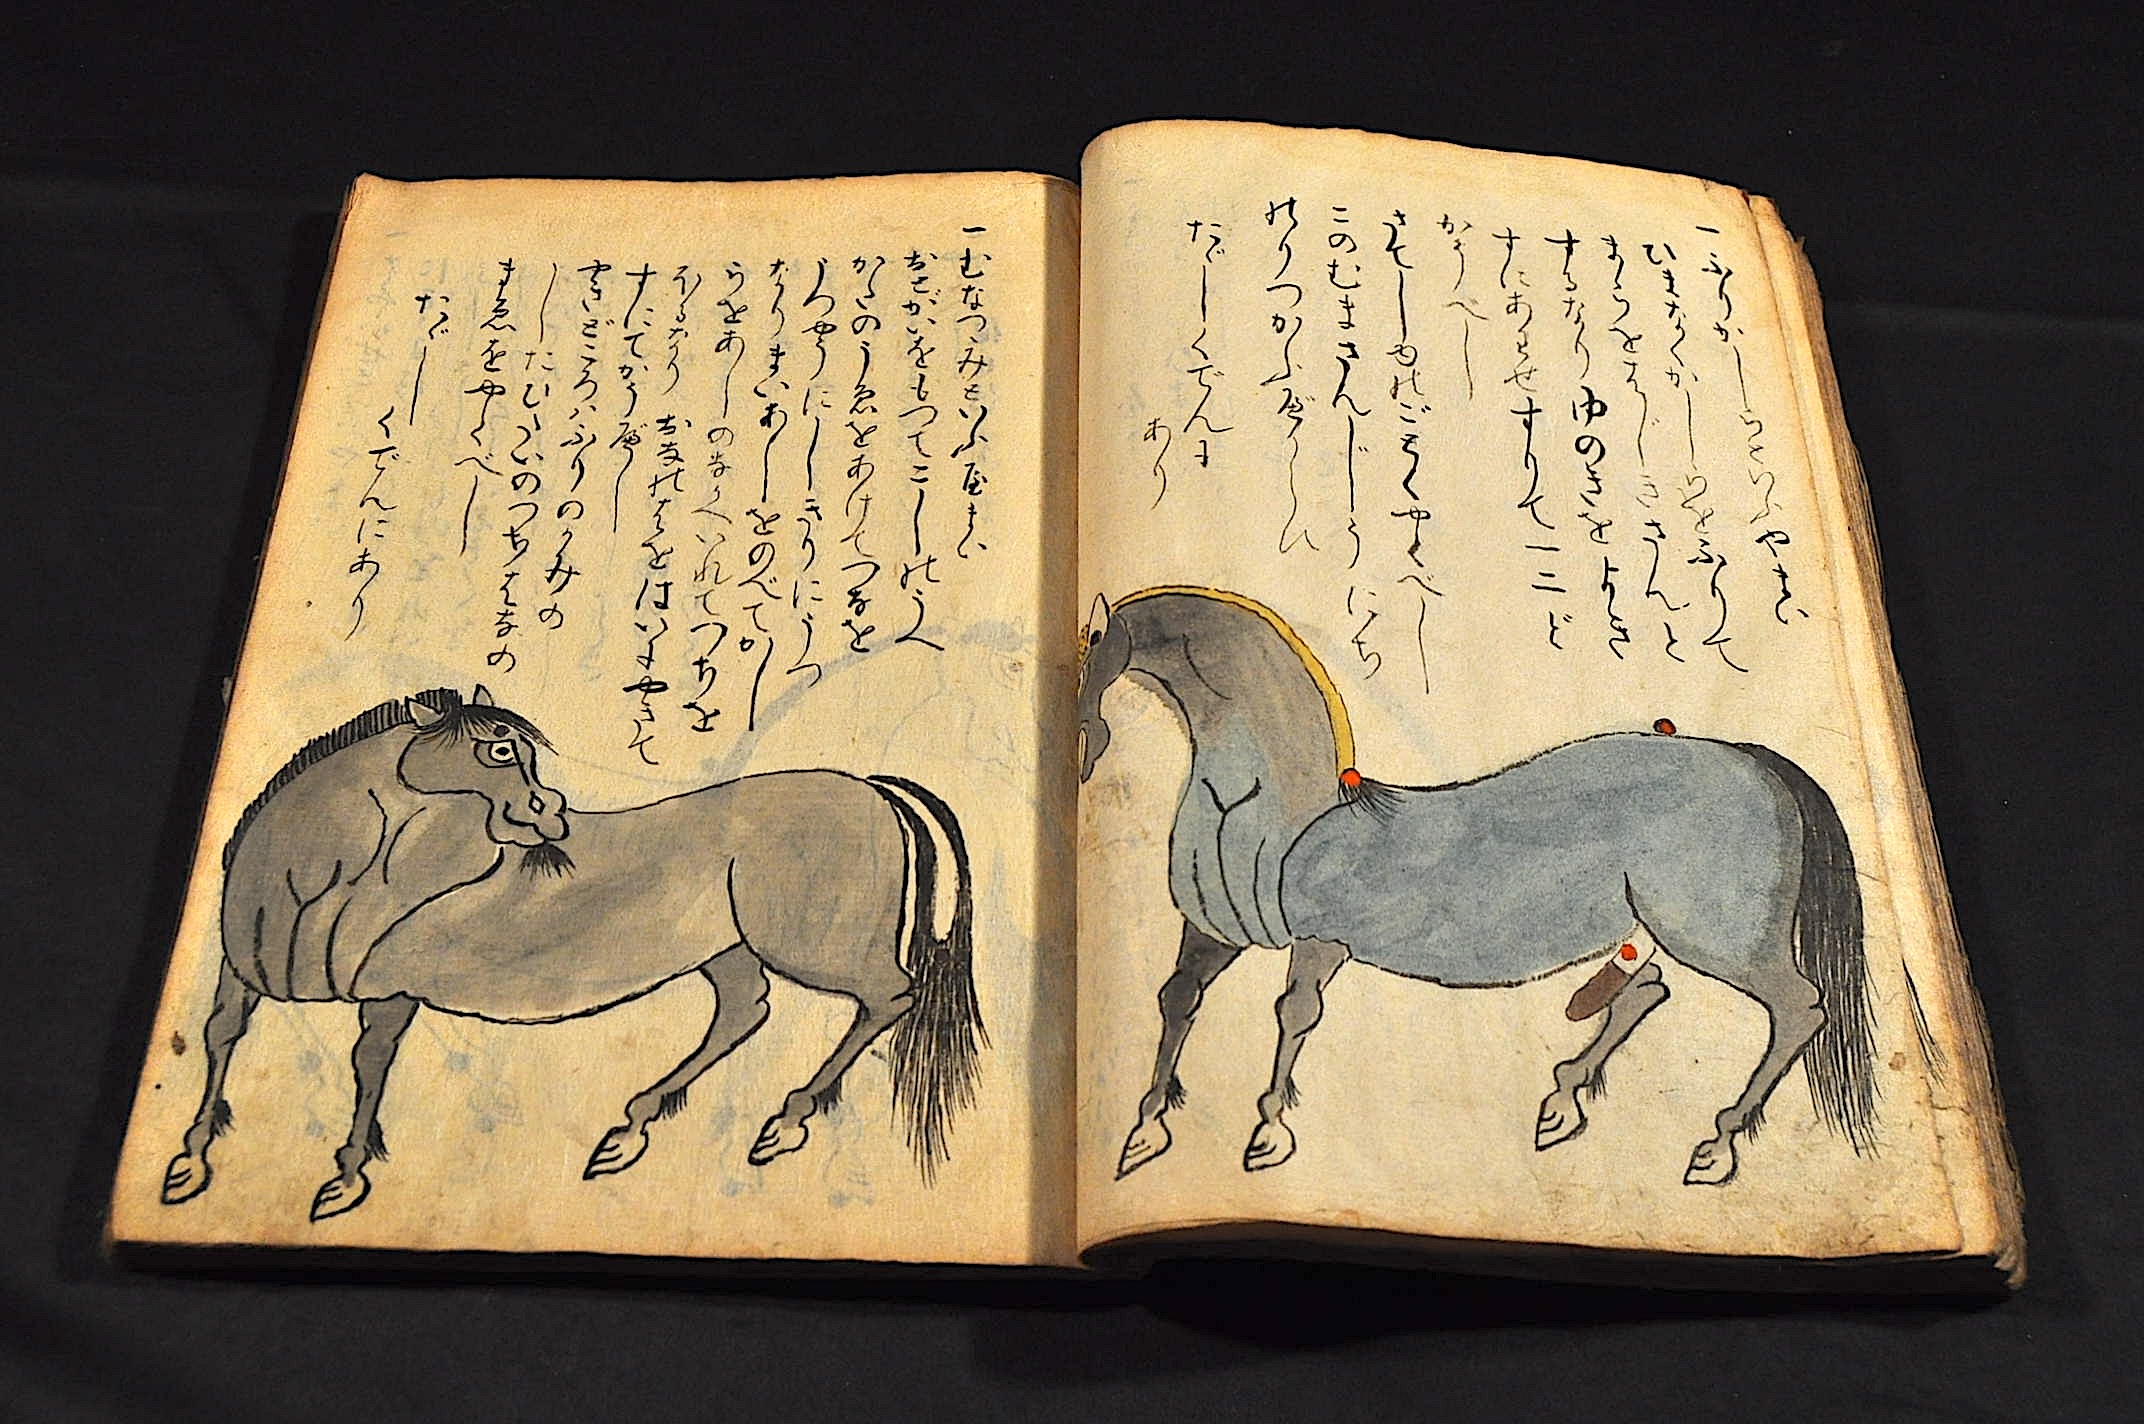 一ふりかしらといふやまひ
ひまなくかしらをふりて
まうをはじきさんと
するなりゆのきをよき
すにあはせすりて一二ど
かうべし
さてしものごとくやくべし
このむまさんじうにち
のりつかふべからず
たゞしくでんに
あり
一むなつゝみといふやまい
おぜがいをもつてこしのうへ
かたのうゑをあけてつなを
うつやうにしきりにうつ
なりまいあしをのべてかし
らをあしのなかへいれてつちを
ほるなり おなのはをはいにやきて
すにてかうべし
やきどころはふりのかみの
ししたひたいのつちはなの
まゑをやくべし
たゞし
くでんにあり